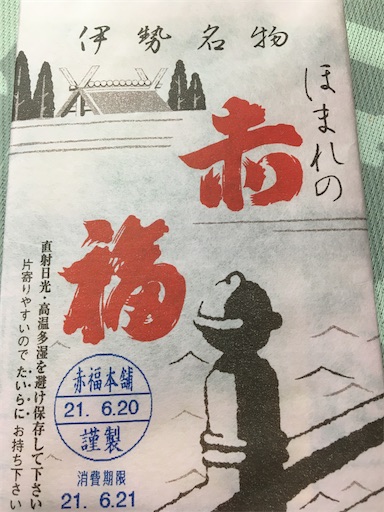 伊勢名物
ほまれの
赤福
直射日光・高温多湿を避け保存して下さい
片寄りやすいので たいらに お持ち下さい
赤福本舗
21. 6.20
謹製
消費期限
21. 6.21